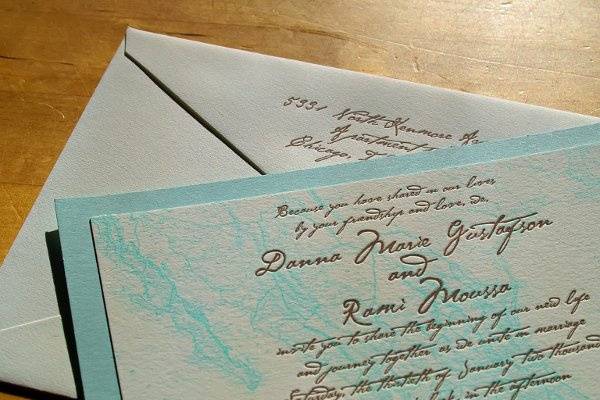 5331 North Kenmore Av
Apartment
Chicago, I
Because you have shared in our lives
by your friendship and love, we,
Danna Marie Gustafson
and
Rami Moussa
invite you to share the beginning of our new life
and journey together as we unite in marriage
Saturday, the thirtieth of January two thousand
in the afternoon